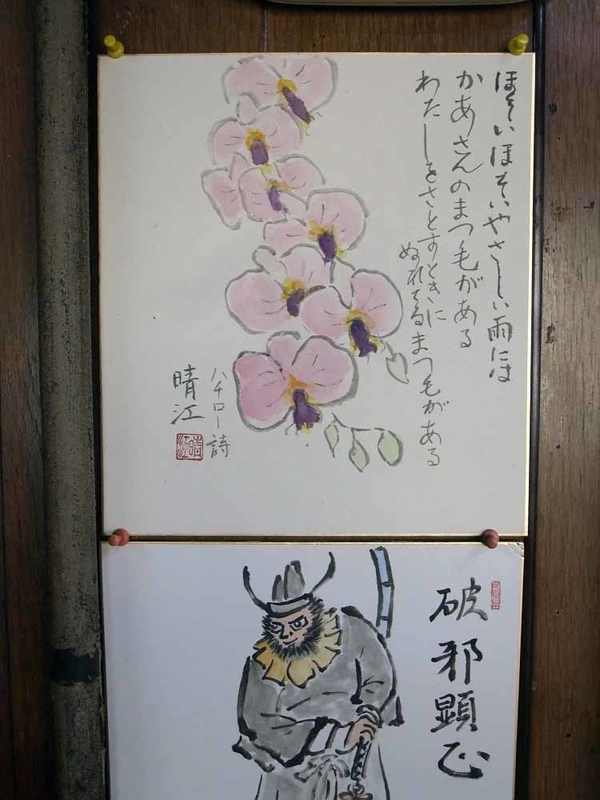 ほそいほそいやさしい雨には
かあさんのまつ毛がある
わたしをさとすときに
ぬれてるまつ毛がある
ハチロー詩
晴江
晴江
破邪顕正